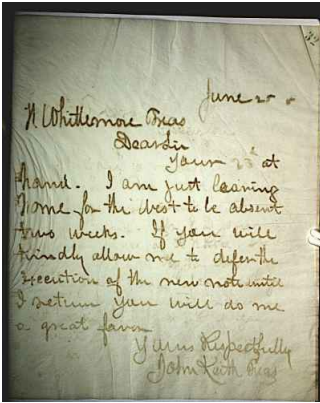 32
June 25
N Whittemore Treas
Dear Sir
Your 23d at
hand. I am just leaving
home for the West to be absent
two weeks. If you will
kindly allow me to defer the
execution of the new note until
I return you will do me
a great favor
Yours Respectfully
John Keith Treas